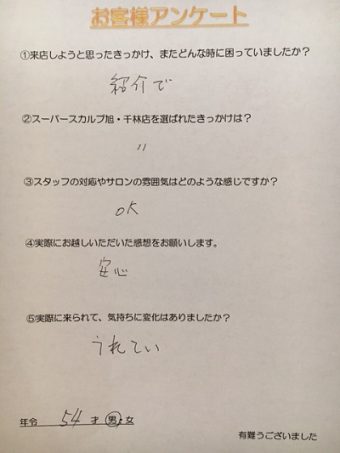 お客様アンケート
①来店しようと思ったきっかけ、またどんな時に困っていましたか？
紹介で
②スーパースカルプ旭・千林店を選ばれたきっかけは？
〃
③スタッフの対応やサロンの雰囲気はどのような感じですか？
OK
④実際にお越しいただいた感想をお願いします。
安心
⑤実際に来られて、気持ちに変化はありましたか？
うれてい
年令 54 才 男・女
有難うございました